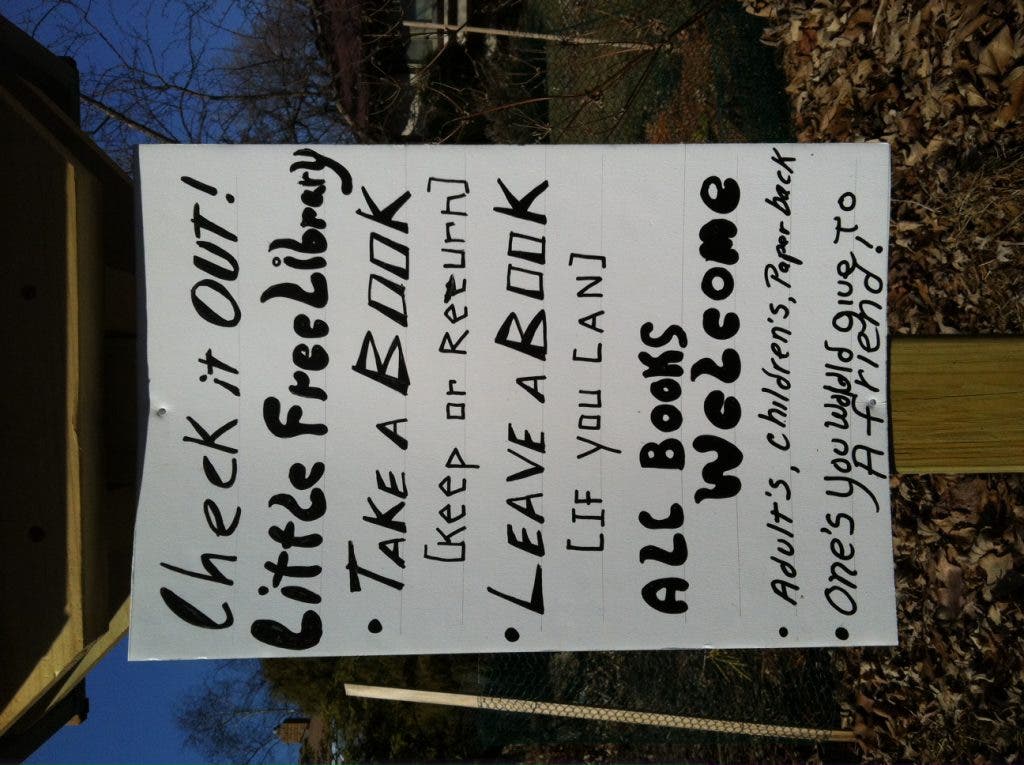 Check it OUT!
Little Free Library
• TAKE A BOOK
[Keep or Return]
• LEAVE A BOOK
[IF YOU CAN]
ALL BOOKS
Welcome
• Adult's, Children's, Paperback
• One's You Would give To
A friend!